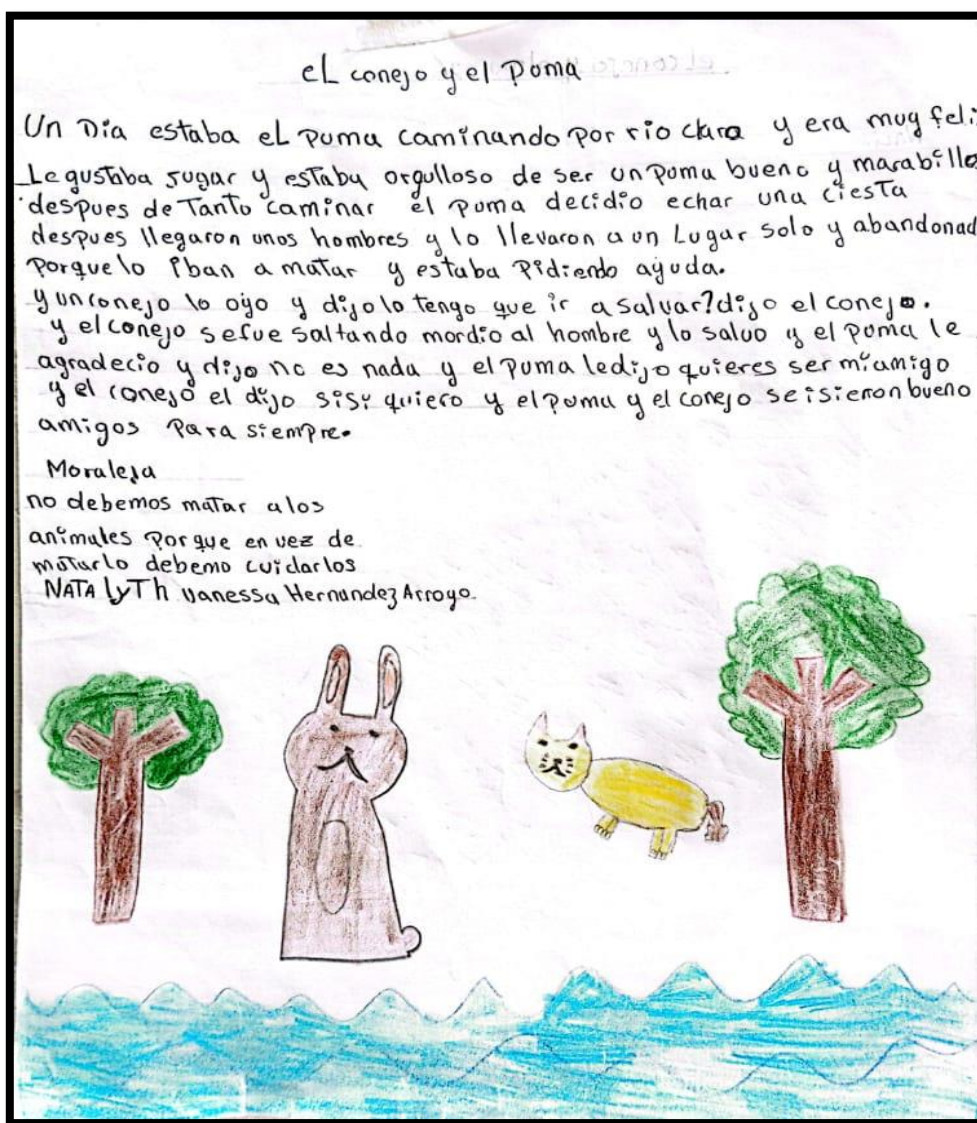 eL conejo y el Puma
Un Día estaba eL puma caminando por rio claro y era muy feli
Le gustaba jugar y estaba orgulloso de ser un Puma bueno y marabillo
despues de Tanto caminar el puma decidio echar una ciesta
despues llegaron unos hombres y lo llevaron a un Lugar solo y abandonad
Porque lo iban a matar y estaba Pidiendo ayuda.
y un conejo lo oyo y dijo lo tengo que ir a salvar? dijo el conejo.
y el conejo se fue saltando mordio al hombre y lo salvo y el puma le
agradecio y dijo no es nada y el puma le dijo quieres ser mi amigo
y el conejo el dijo si si quiero y el puma y el conejo se isieron bueno
amigos Para siempre.
Moraleja
no debemos maTar a los
animales Porque en vez de
matarlo debemo cuidarlos
NATAlyTh vanessa Hernandez Arroyo.